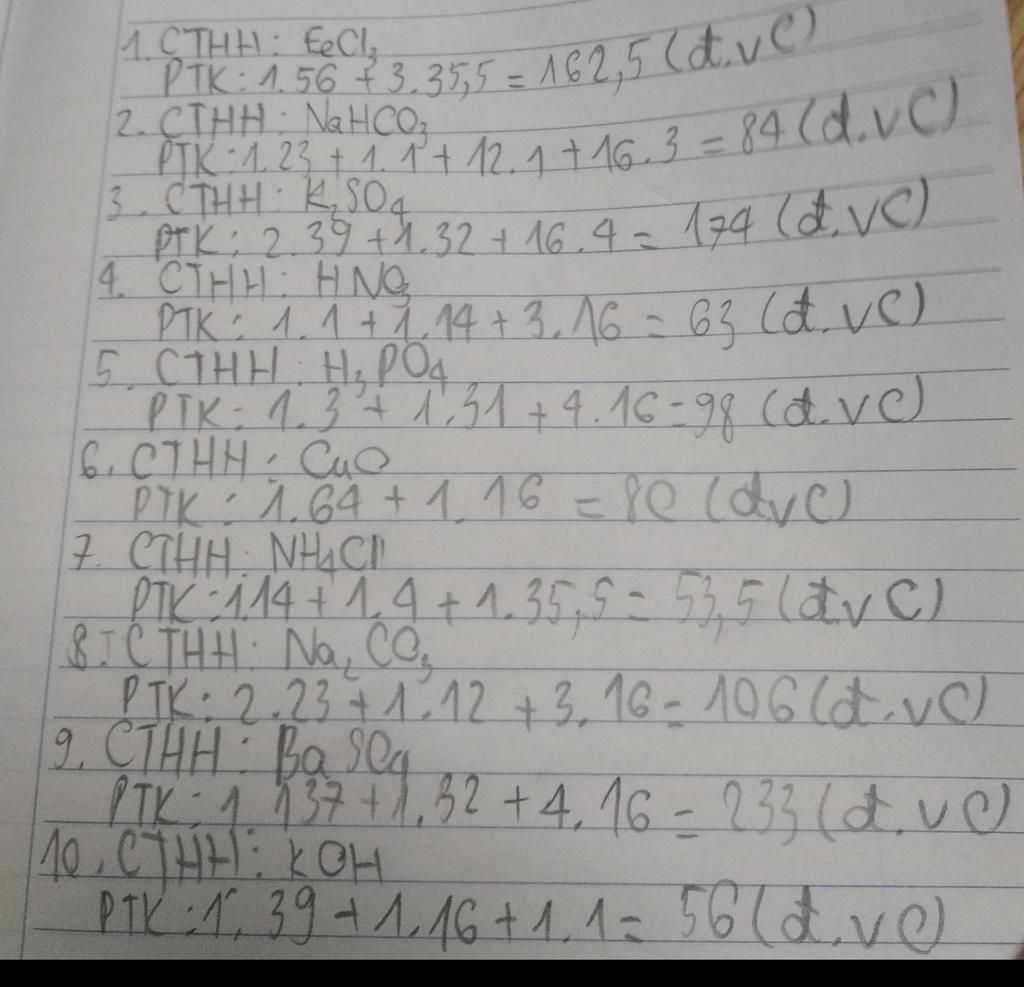 1. CTHH: FeCl₃
PTK: 1.56 + 3.35,5 = 162,5 (đ.vC)
2. CTHH: NaHCO₃
PTK: 1.23 + 1.1 + 12.1 + 16.3 = 84 (đ.vC)
3. CTHH: K₂SO₄
PTK: 2.39 + 1.32 + 16.4 = 174 (đ.vC)
4. CTHH: HNO₃
PTK: 1.1 + 1.14 + 3.16 = 63 (đ.vC)
5. CTHH: H₃PO₄
PTK: 1.3 + 1.31 + 4.16 = 98 (đ.vC)
6. CTHH: CuO
PTK: 1.64 + 1.16 = 80 (đvC)
7. CTHH: NH₄Cl
PTK: 1.14 + 1.4 + 1.35,5 = 53,5 (đvC)
8. CTHH: Na₂CO₃
PTK: 2.23 + 1.12 + 3.16 = 106 (đ.vC)
9. CTHH: BaSO₄
PTK: 1.137 + 1.32 + 4.16 = 233 (đ.vC)
10. CTHH: KOH
PTK: 1.39 + 1.16 + 1.1 = 56 (đ.vC)